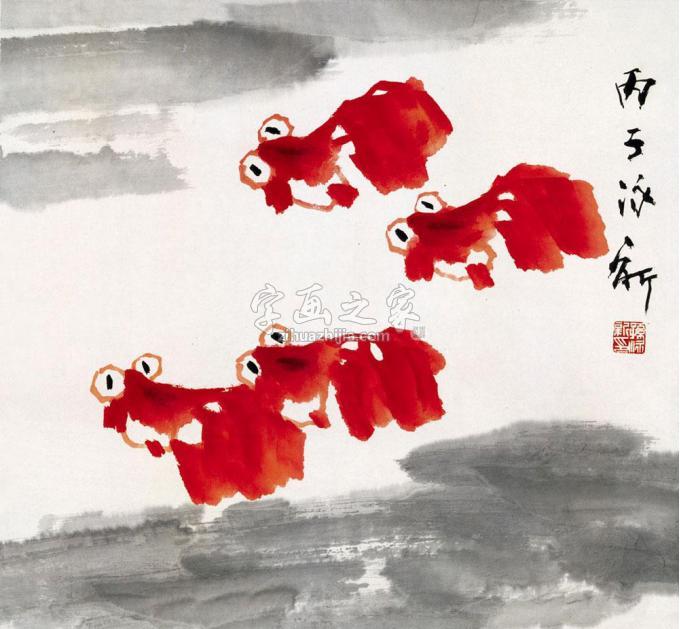 丙子泳新
孫泳
新印
字画之家
zihuazhijia.com